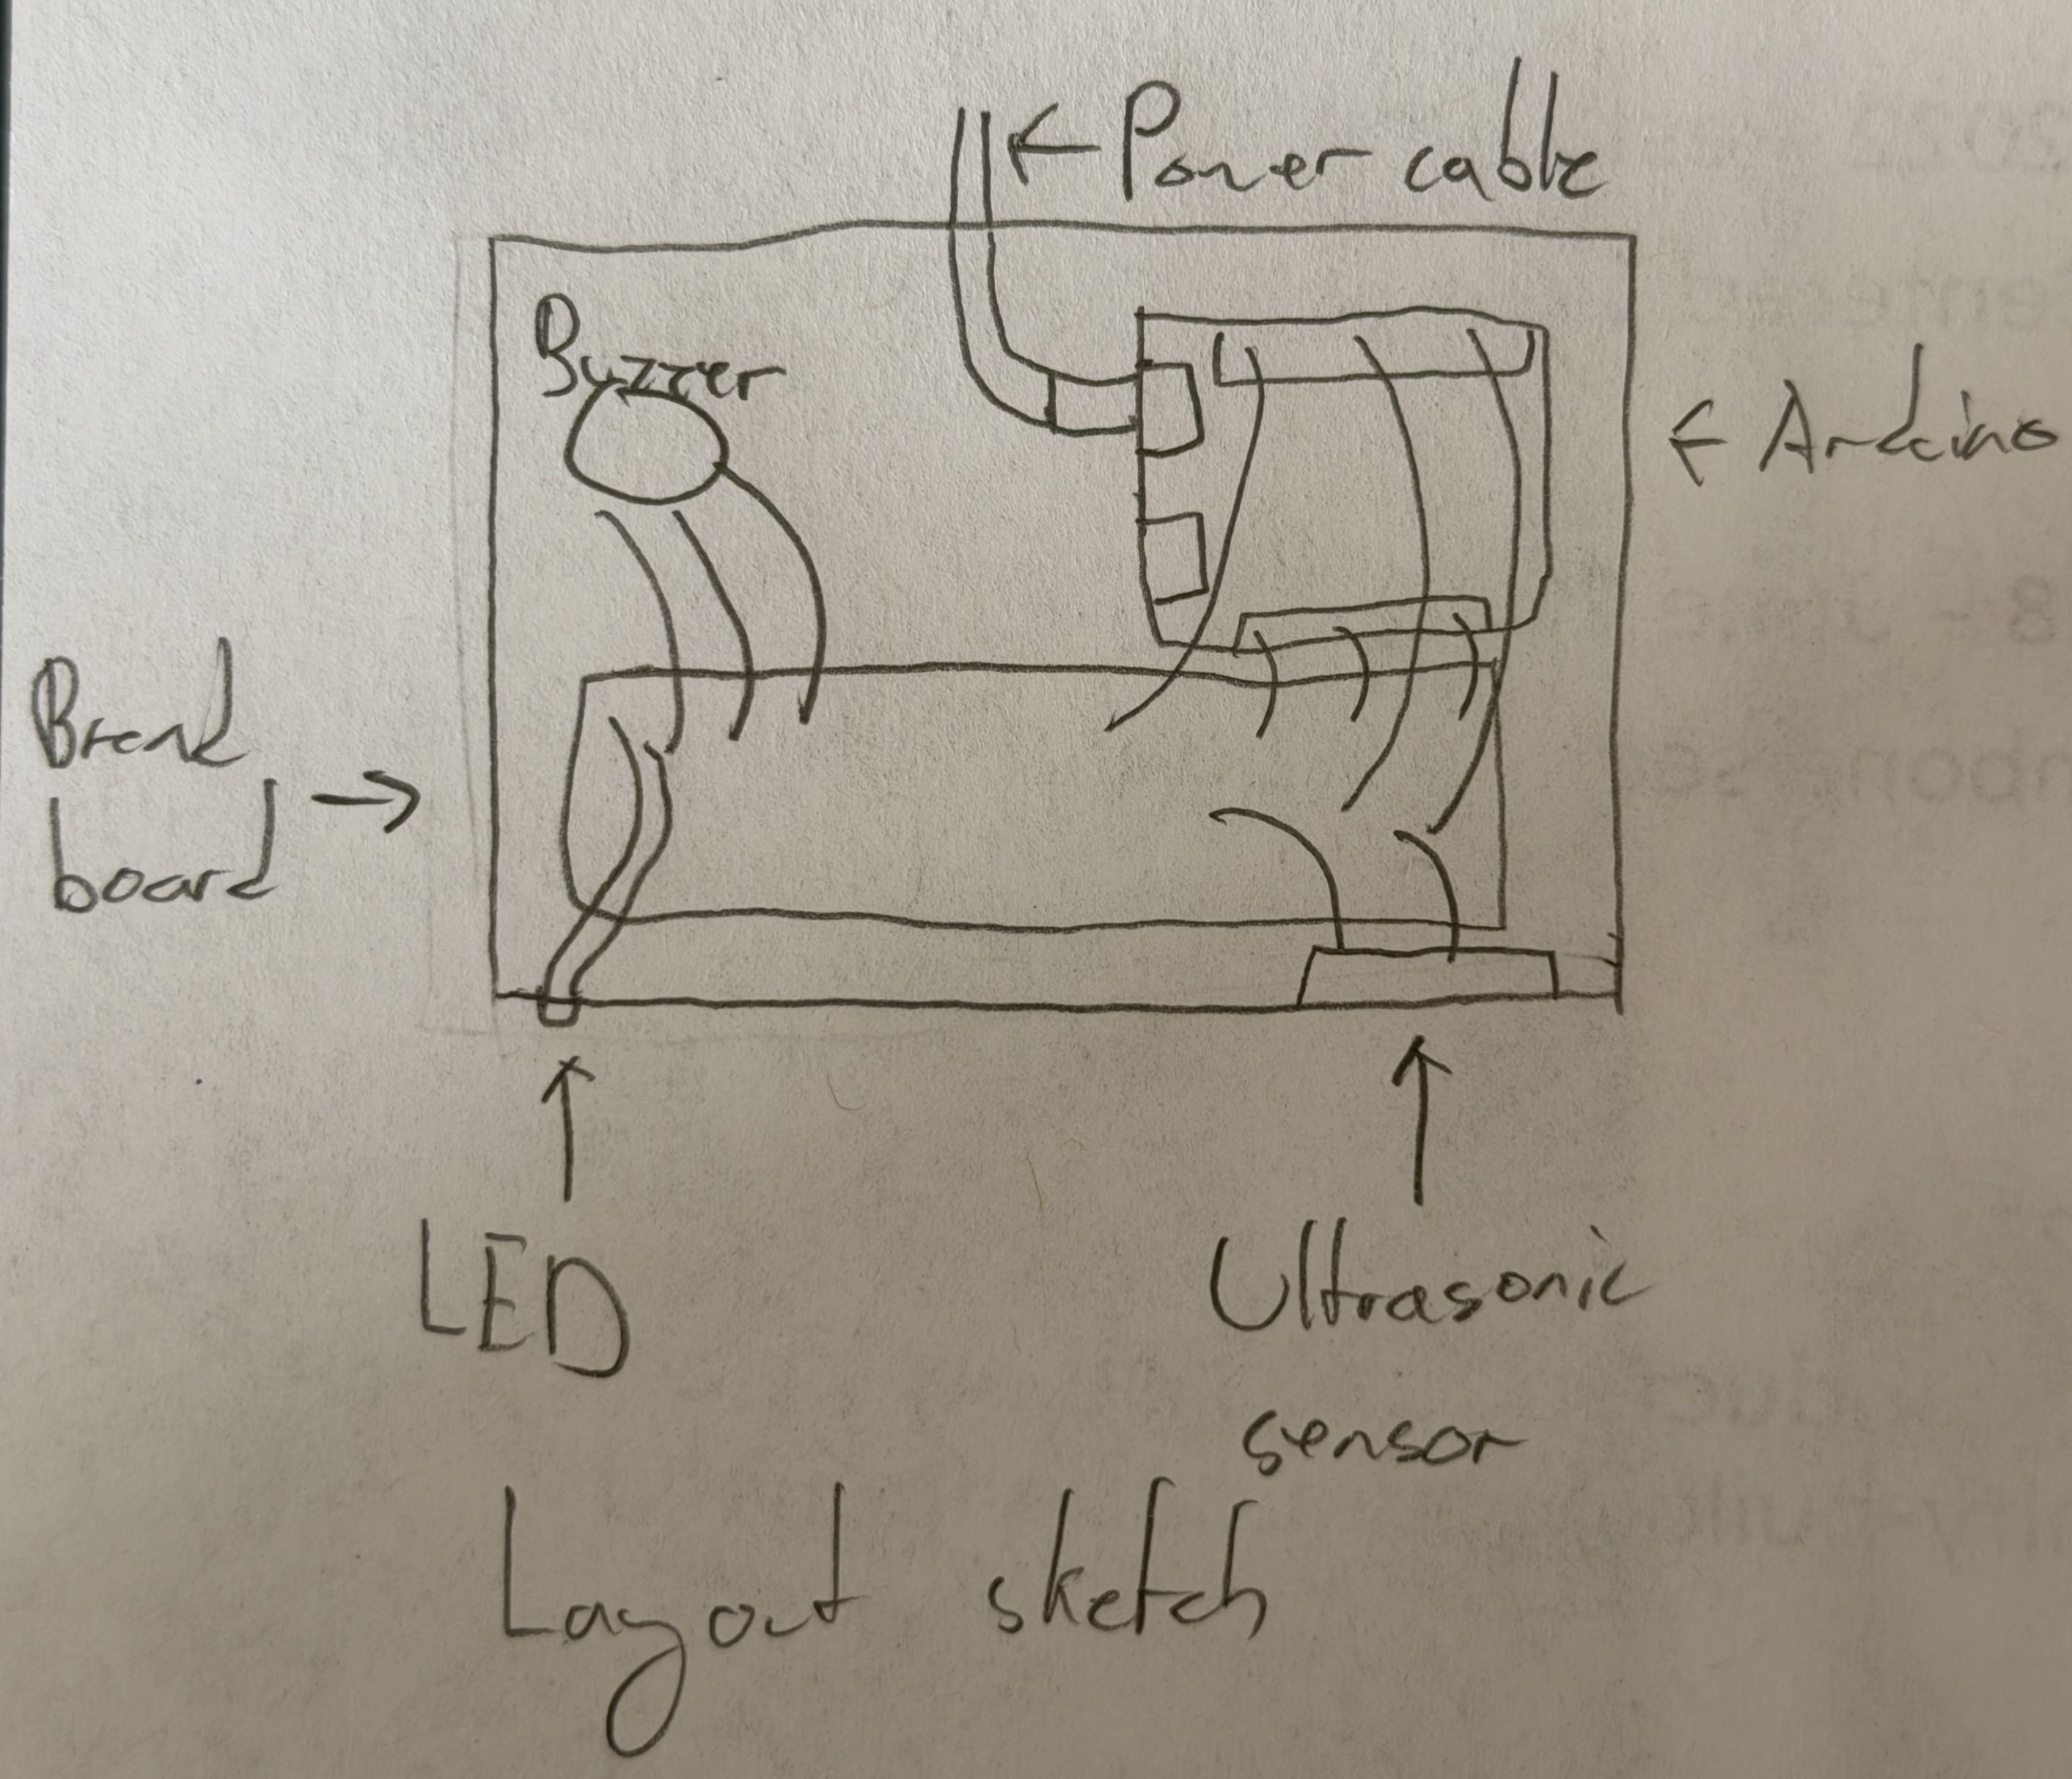 ← Power cable
Buzzer
← Arduino
Bread
board →
LED
Ultrasonic
sensor
Layout sketch